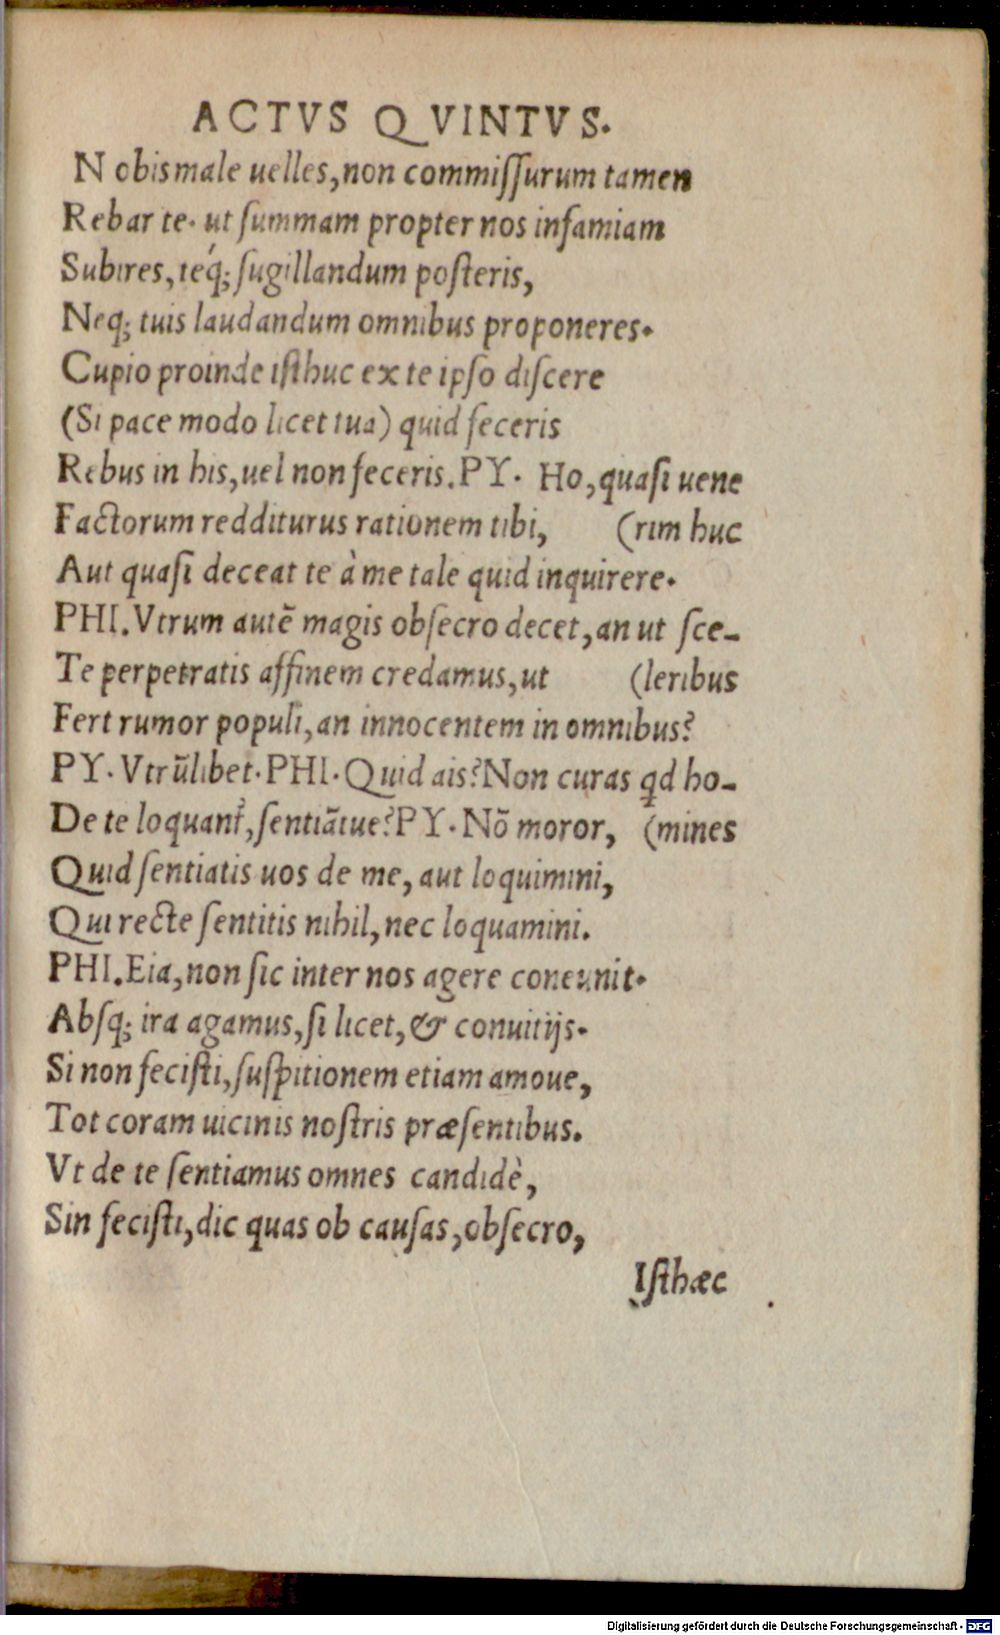 ACTVS QVINTVS.
Nobis male uelles, non commiſſurum tamen
Rebar te. ut ſummam propter nos infamiam
Subires, teq́; ſugillandum poſteris,
Neq; tuis laudandum omnibus proponeres.
Cupio proinde iſthuc ex te ipſo diſcere
(Si pace modo licet tua) quid feceris
Rebus in his, uel non feceris. PY. Ho, quaſi uene
Factorum redditurus rationem tibi, (rim huc
Aut quaſi deceat te à me tale quid inquirere.
PHI. Vtrum autē magis obſecro decet, an ut ſce-
Te perpetratis affinem credamus, ut (leribus
Fert rumor populi, an innocentem in omnibus?
PY. Vtrūlibet. PHI. Quid ais? Non curas qd ho-
De te loquant̃, ſentiātue? PY. Nō moror, (mines
Quid ſentiatis uos de me, aut loquimini,
Qui recte ſentitis nihil, nec loquamini.
PHI. Eia, non ſic inter nos agere coneunit.
Abſq; ira agamus, ſi licet, & conuitijs.
Si non feciſti, ſuſpitionem etiam amoue,
Tot coram uicinis noſtris præſentibus.
Vt de te ſentiamus omnes candidè,
Sin feciſti, dic quas ob cauſas, obſecro,
Iſthæc
Digitalisierung gefördert durch die Deutsche Forschungsgemeinschaft - DFG